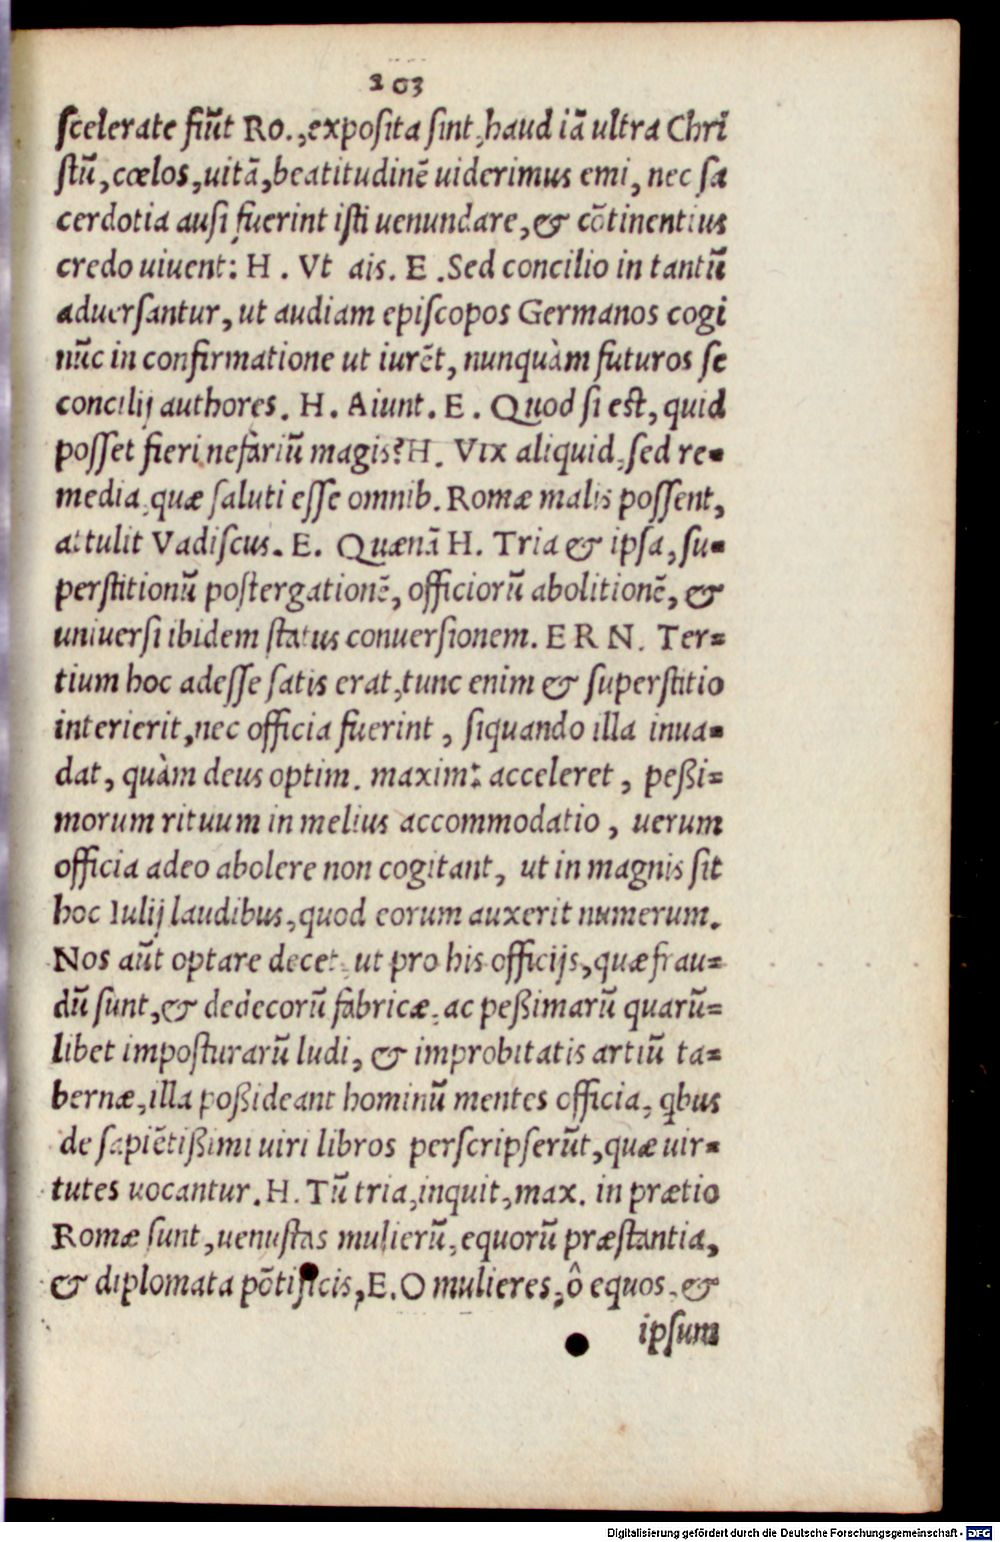 203
scelerate fiūt Ro., exposita sint, haud iā ultra Chri
stū, cœlos, uitā, beatitudinē uiderimus emi, nec sa
cerdotia ausi fuerint isti uenundare, & cōtinentius
credo uiuent: H. Vt ais. E. Sed concilio in tantū
aduersantur, ut audiam episcopos Germanos cogi
nūc in confirmatione ut iurēt, nunquàm futuros se
concilij authores. H. Aiunt. E. Quod si est, quid
posset fieri nefariū magis? H. Vix aliquid, sed re-
media, quæ saluti esse omnib. Romæ malis possent,
attulit Vadiscus. E. Quænā H. Tria & ipsa, su-
perstitionū postergationē, officiorū abolitionē, &
uniuersi ibidem status conuersionem. ERN. Ter-
tium hoc adesse satis erat, tunc enim & superstitio
interierit, nec officia fuerint, siquando illa inua-
dat, quàm deus optim. maxim: acceleret, peßi-
morum rituum in melius accommodatio, uerum
officia adeo abolere non cogitant, ut in magnis sit
hoc Iulij laudibus, quod eorum auxerit numerum.
Nos aūt optare decet, ut pro his officijs, quæ frau-
dū sunt, & dedecorū fabricæ, ac peßimarū quarū-
libet imposturarū ludi, & improbitatis artiū ta-
bernæ, illa poßideant hominū mentes officia, qbus
de sapiētißimi uiri libros perscripserūt, quæ uir-
tutes uocantur. H. Tū tria, inquit, max. in prætio
Romæ sunt, uenustas mulierū, equorū præstantia,
& diplomata pōtificis, E. O mulieres, ô equos, &
ipsum
Digitalisierung gefördert durch die Deutsche Forschungsgemeinschaft - DFG